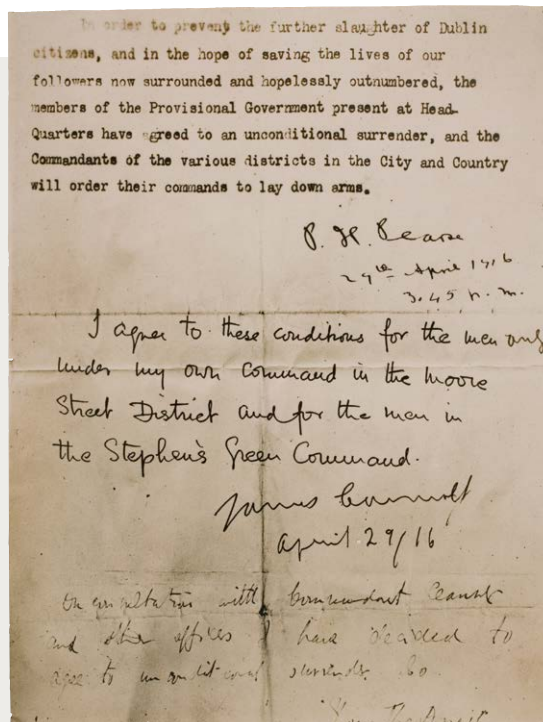 In order to prevent the further slaughter of Dublin
citizens, and in the hope of saving the lives of our
followers now surrounded and hopelessly outnumbered, the
members of the Provisional Government present at Head-
Quarters have agreed to an unconditional surrender, and the
Commandants of the various districts in the City and Country
will order their commands to lay down arms.
P. H. Pearse
29th April 1916
3.45 p.m.
I agree to these conditions for the men only
under my own command in the Moore
Street District and for the men in
the Stephen's Green Command.
James Connolly
April 29/16
On consultation with Commandant Ceannt
and other officers I have decided to
agree to unconditional surrender also